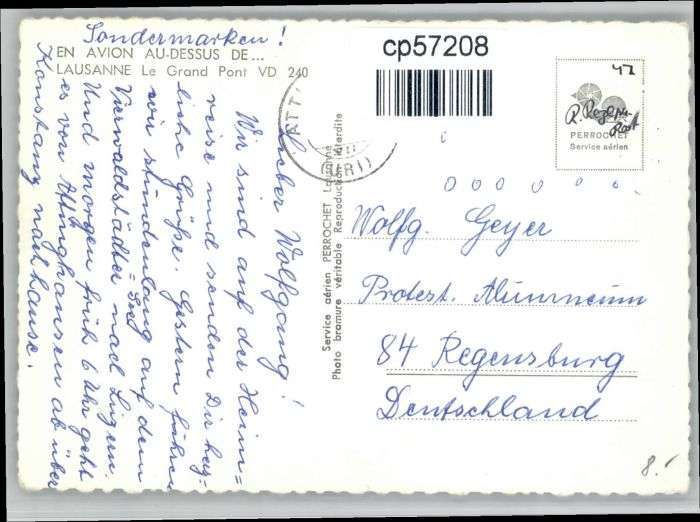 Sondermarken!
EN AVION AU-DESSUS DE...
LAUSANNE Le Grand Pont VD 240
cp57208
Lieber Wolfgang!
Wir sind auf der Heim=
reise und senden Dir herz-
liche Grüße. Gestern fuhren
wir stundenlang auf dem
Vierwaldstädter=See
nach Luzern.
Und morgen früh 6 Uhr geht
es von Attinghausen ab über
Konstanz nach hause.
ATT
(URI)
Service aérien PERROCHET Lausanne
Photo bromure véritable Reproduction interdite
PERROCHET
Service aérien
Wolfg. Geyer
Protest. Alumneum
84 Regensburg
Deutschland
8.-